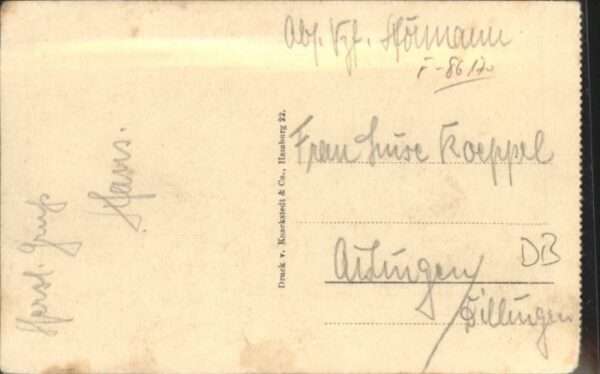 Herzl. Gruß
Hans.
Druck v. Knackstedt & Co., Hamburg 22.
Abs. Vzf. Hörmann
F-86170
Frau Luise Koeppel
DB
Dillingen